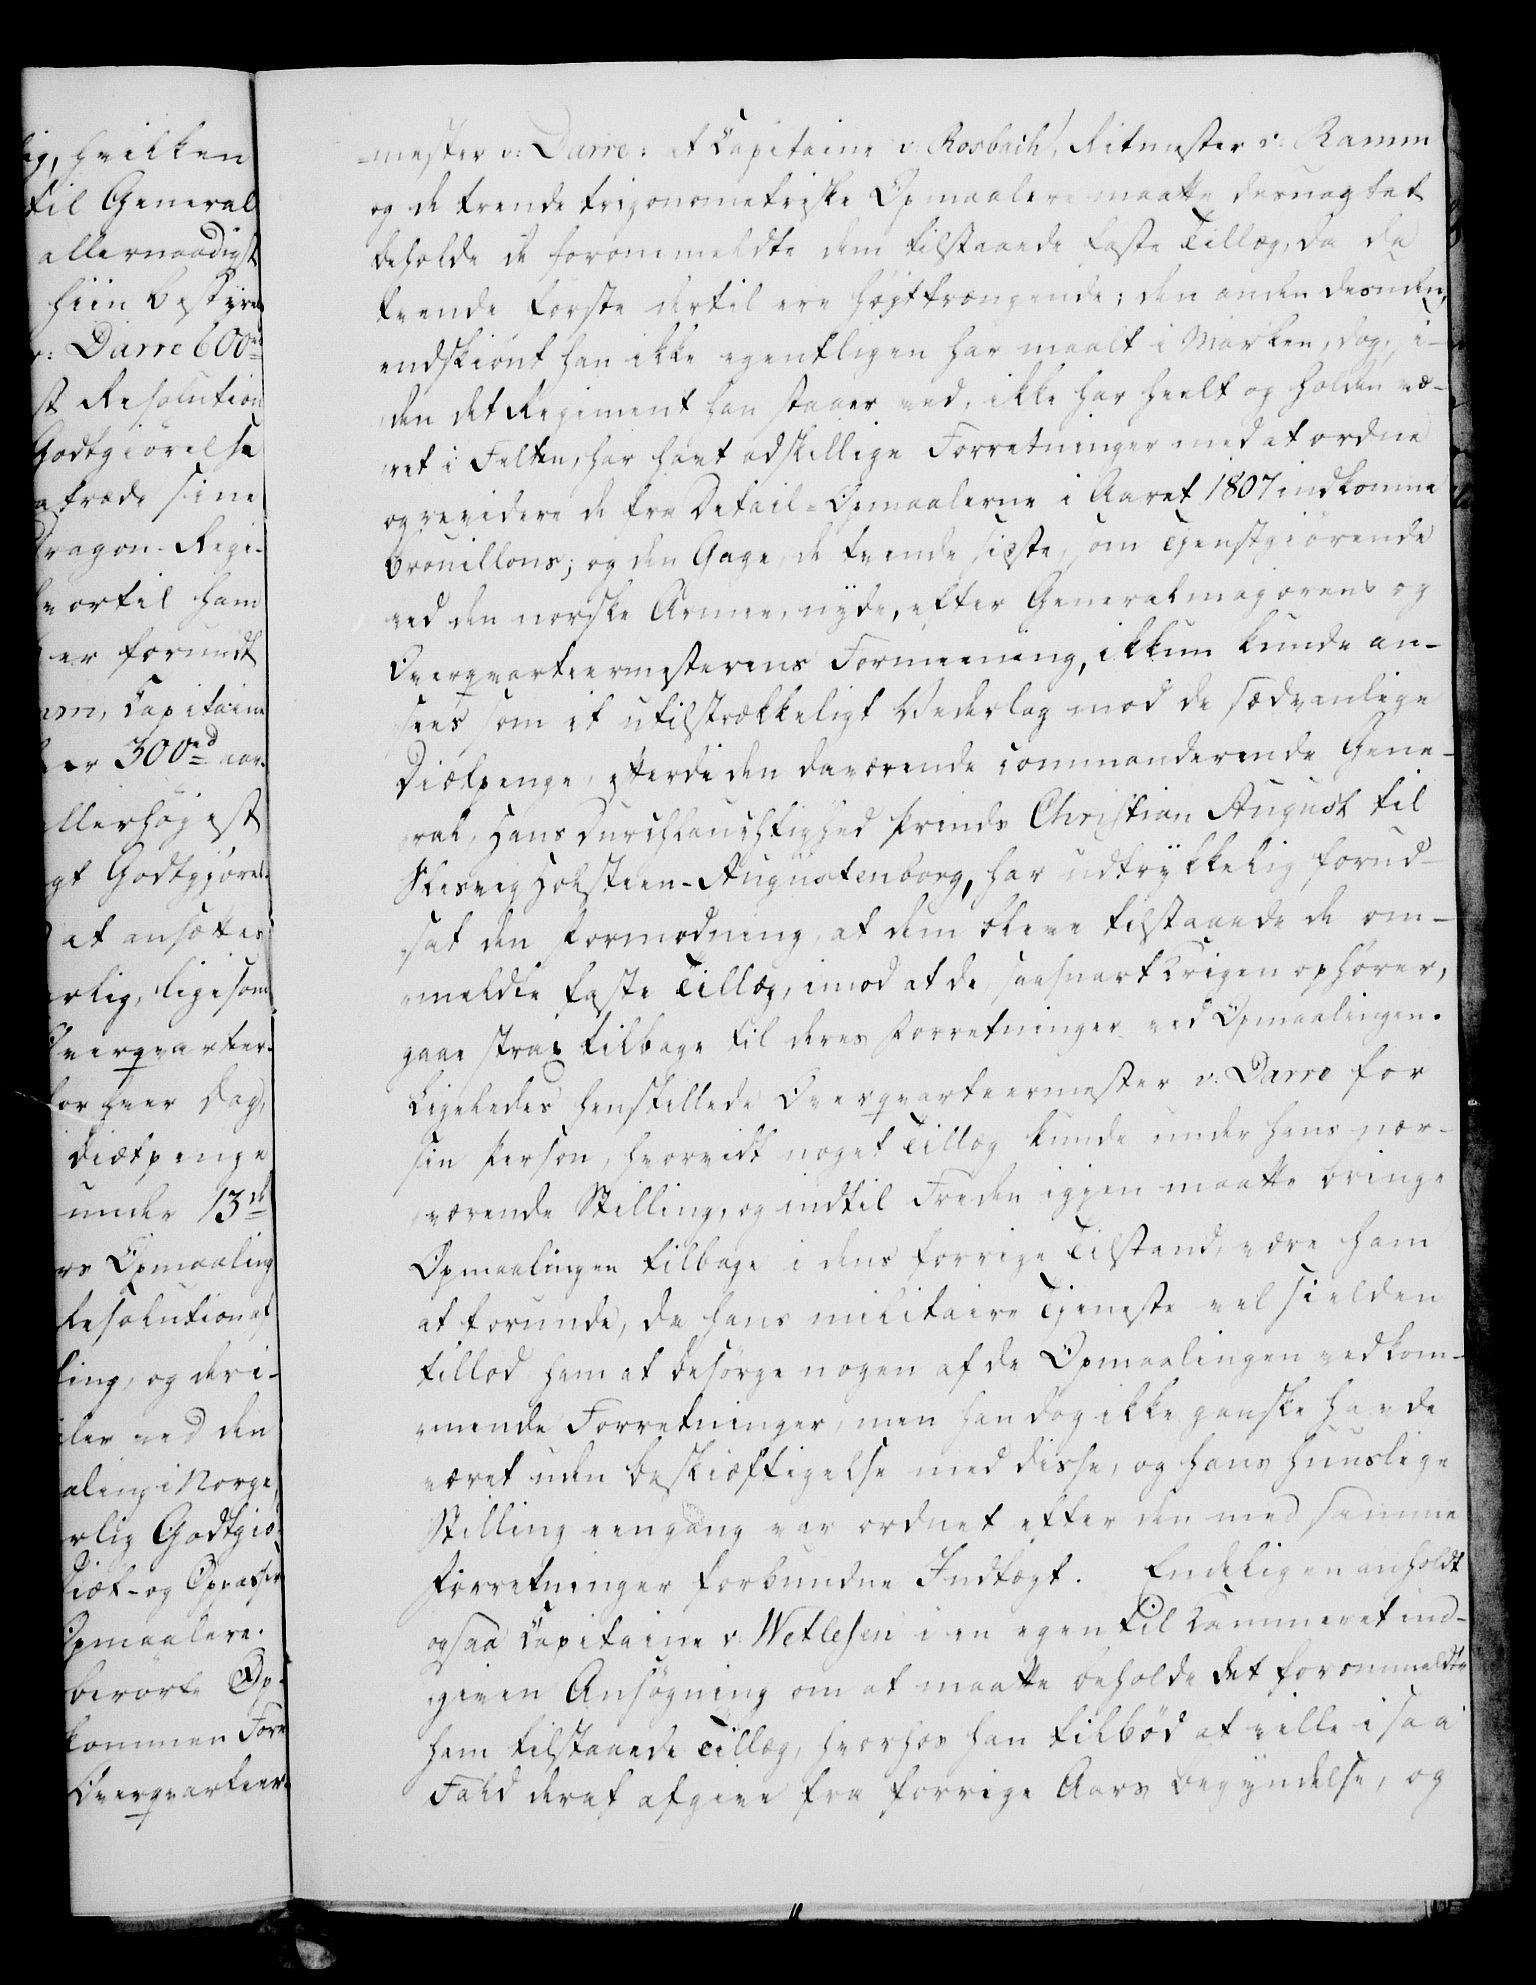 ig, hvilken
til General
allernaadigst
hiin bestyre
v: Darre 600rd
st Resolution
Godtgiörelse
atræde sine
Dragon-Regi-
hvortil ham
er forundt
mm, Capitaine
er 300rd aar-
llerhøiest
gt Godtgjørel-
at ansættes
rlig, ligesom
Overqvarteer-
for hver Dag,
Diætpenge
under 13de
rs Opmaaling
Resolution af
ling, og deri-
ler ved den
aling i Norge,
rlig Godtgiö-
Diæt- og Oppasser
Opmaalere.
berörte Op-
kommen Fore
Overqvarteer-
-mester v: Darre: at Capitaine v: Rosbach, Ritmester v: Ramm
og de trende trigonometriske Opmaalere maatte desuagtet
beholde de forommeldte dem tilstaaede faste Tillæg, da de
tvende förste dertil ere höjttrængende; den anden desuden,
endskiönt han ikke egentligen har maalt i Marken, dog, i-
den det Regiment han staaer ved, ikke har heelt og holden væ-
ret i Felten, har havt adskillige Forretninger med at ordne
og revidere de fra Detail-Opmaalerne i Aaret 1807 indkomne
brouillons; og den Gage, de tvende sidste, som tjenstgiörende
ved den norske Armee, nyde, efter Generalmajorens og
Overqvarteermesterens Formeening, ikkun kunde an-
sees som et utilstrækkeligt Vederlag mod de sædvanlige
Diætpenge, efterdi den daværende commanderende Gene-
ral, Hans Durchlauchtighed Prinds Christian August til
Slesvig Holsteen-Augustenborg, har udtrykkelig forud-
sat den Formodning, at dem bleve tilstaaede de om-
meldte faste Tillæg, imod at de, saasnart Krigen ophører,
gaae strax tilbage til deres Forretninger ved Opmaalingen.
Ligeledes henstillede Overqvarteermester v: Darre for
sin Person, hvorvidt noget Tillæg kunde under hans nær-
værende Stilling, og indtil Freden igjen maatte bringe
Opmaalingen tilbage i dens forrige Tilstand, være ham
at forunde, da hans militaire Tjeneste vel sielden
tillod ham at besörge nogen af de Opmaalingen vedkom-
mende Forretninger, men han dog ikke ganske havde
været uden Beskiæftigelse med disse, og hans huuslige
Stilling eengang var ordnet efter den med samme
Forretninger forbundne Indtægt. Endeligen anholdt
ogsaa Capitaine v: Wetlesen i en egen til Kammeret ind-
given Ansøgning om at maatte beholde det forommeldte
ham tilstaaede Tillæg, hvorhos han tilbød at ville i saa
Fald deraf afgive fra forrige Aars Begyndelse, og